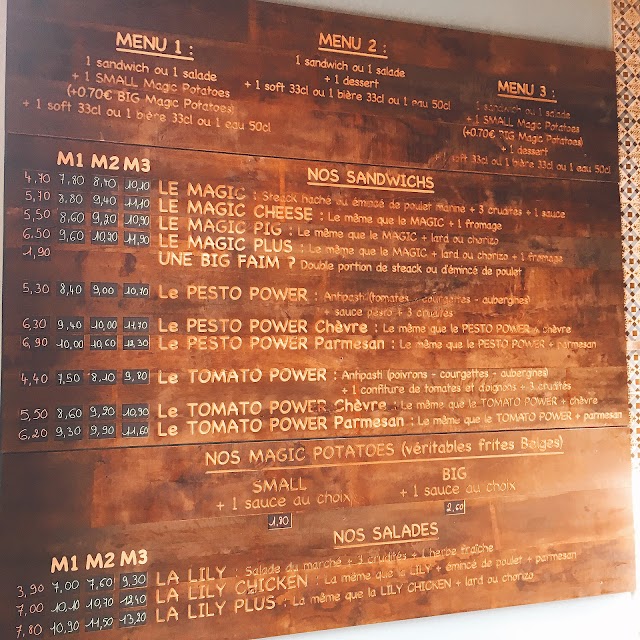 MENU 1 :
1 sandwich ou 1 salade
+ 1 SMALL Magic Potatoes
(+0.70€ BIG Magic Potatoes)
+ 1 soft 33cl ou 1 bière 33cl ou 1 eau 50cl
MENU 2 :
1 sandwich ou 1 salade
+ 1 dessert
+ 1 soft 33cl ou 1 bière 33cl ou 1 eau 50cl
MENU 3 :
1 sandwich ou 1 salade
+ 1 SMALL Magic Potatoes
(+0.70€ BIG Magic Potatoes)
+ 1 dessert
+ 1 soft 33cl ou 1 bière 33cl ou 1 eau 50cl
M1 M2 M3
NOS SANDWICHS
4,70 7,80 8,40 10,10 LE MAGIC : Steack haché ou émincé de poulet mariné + 3 crudités + 1 sauce
5,70 8,80 9,40 11,10 LE MAGIC CHEESE : Le même que le MAGIC + 1 fromage
5,50 8,60 9,20 10,90 LE MAGIC PIG : Le même que le MAGIC + lard ou chorizo
6,50 9,60 10,20 11,90 LE MAGIC PLUS : Le même que le MAGIC + lard ou chorizo + 1 fromage
1,90 UNE BIG FAIM ? Double portion de steack ou d'émincé de poulet
5,30 8,40 9,00 10,70 Le PESTO POWER : Antipasti (tomates - courgettes - aubergines)
+ sauce pesto + 3 crudités
6,30 9,40 10,00 11,70 Le PESTO POWER Chèvre : Le même que le PESTO POWER + chèvre
6,90 10,00 10,60 12,30 Le PESTO POWER Parmesan : Le même que le PESTO POWER + parmesan
4,40 7,50 8,10 9,80 Le TOMATO POWER : Antipasti (poivrons - courgettes - aubergines)
+ 1 confiture de tomates et d'oignons + 3 crudités
5,50 8,60 9,20 10,90 Le TOMATO POWER Chèvre : Le même que le TOMATO POWER + chèvre
6,20 9,30 9,90 11,60 Le TOMATO POWER Parmesan : Le même que le TOMATO POWER + parmesan
NOS MAGIC POTATOES (véritables frites Belges)
SMALL
+ 1 sauce au choix
1,90
BIG
+ 1 sauce au choix
2,60
NOS SALADES
M1 M2 M3
3,90 7,00 7,60 9,30 LA LILY : Salade du marché + 3 crudités + 1 herbe fraîche
7,00 10,10 10,70 12,40 LA LILY CHICKEN : La même que la LILY + émincé de poulet + parmesan
7,80 10,90 11,50 13,20 LA LILY PLUS : La même que la LILY CHICKEN + lard ou chorizo